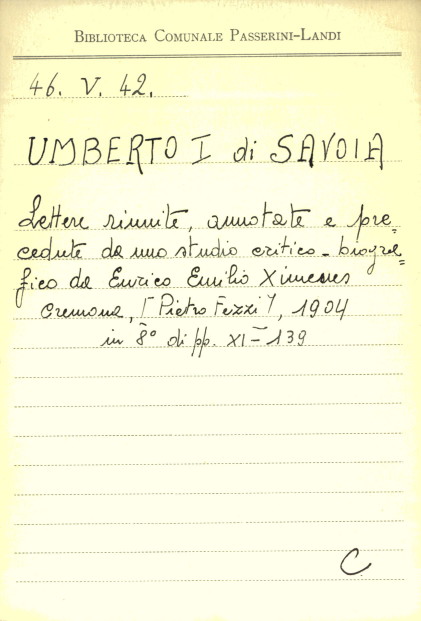 BIBLIOTECA COMUNALE PASSERINI-LANDI
46. V. 42.
UMBERTO I di SAVOIA
Lettere riunite, annotate e pre=
cedute da uno studio critico-biogra=
fico da Enrico Emilio Ximenes
Cremona, [Pietro Fezzi], 1904
in 8° di pp. XI-139
C